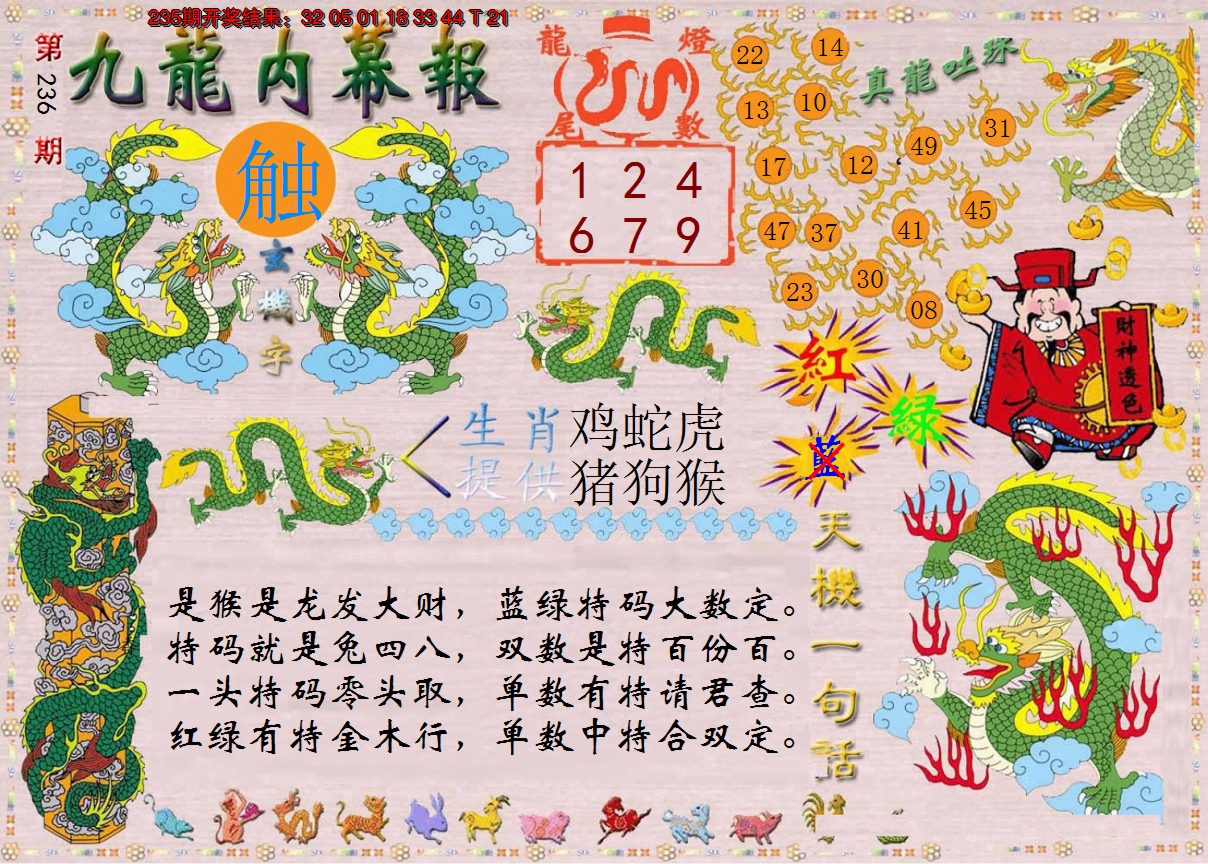 235期开奖结果：32 05 01 18 33 44 T 21
第236期
九龍内幕報
触
玄機字
龍燈
尾數
1 2 4
6 7 9
真龍吐珠
22
14
13
10
49
31
17
12
45
47
37
41
30
23
08
財神透色
紅
緑
藍
生肖 鸡蛇虎
提供 猪狗猴
天機一句話
是猴是龙发大财，蓝绿特码大数定。
特码就是兔四八，双数是特百份百。
一头特码零头取，单数有特请君查。
红绿有特金木行，单数中特合双定。